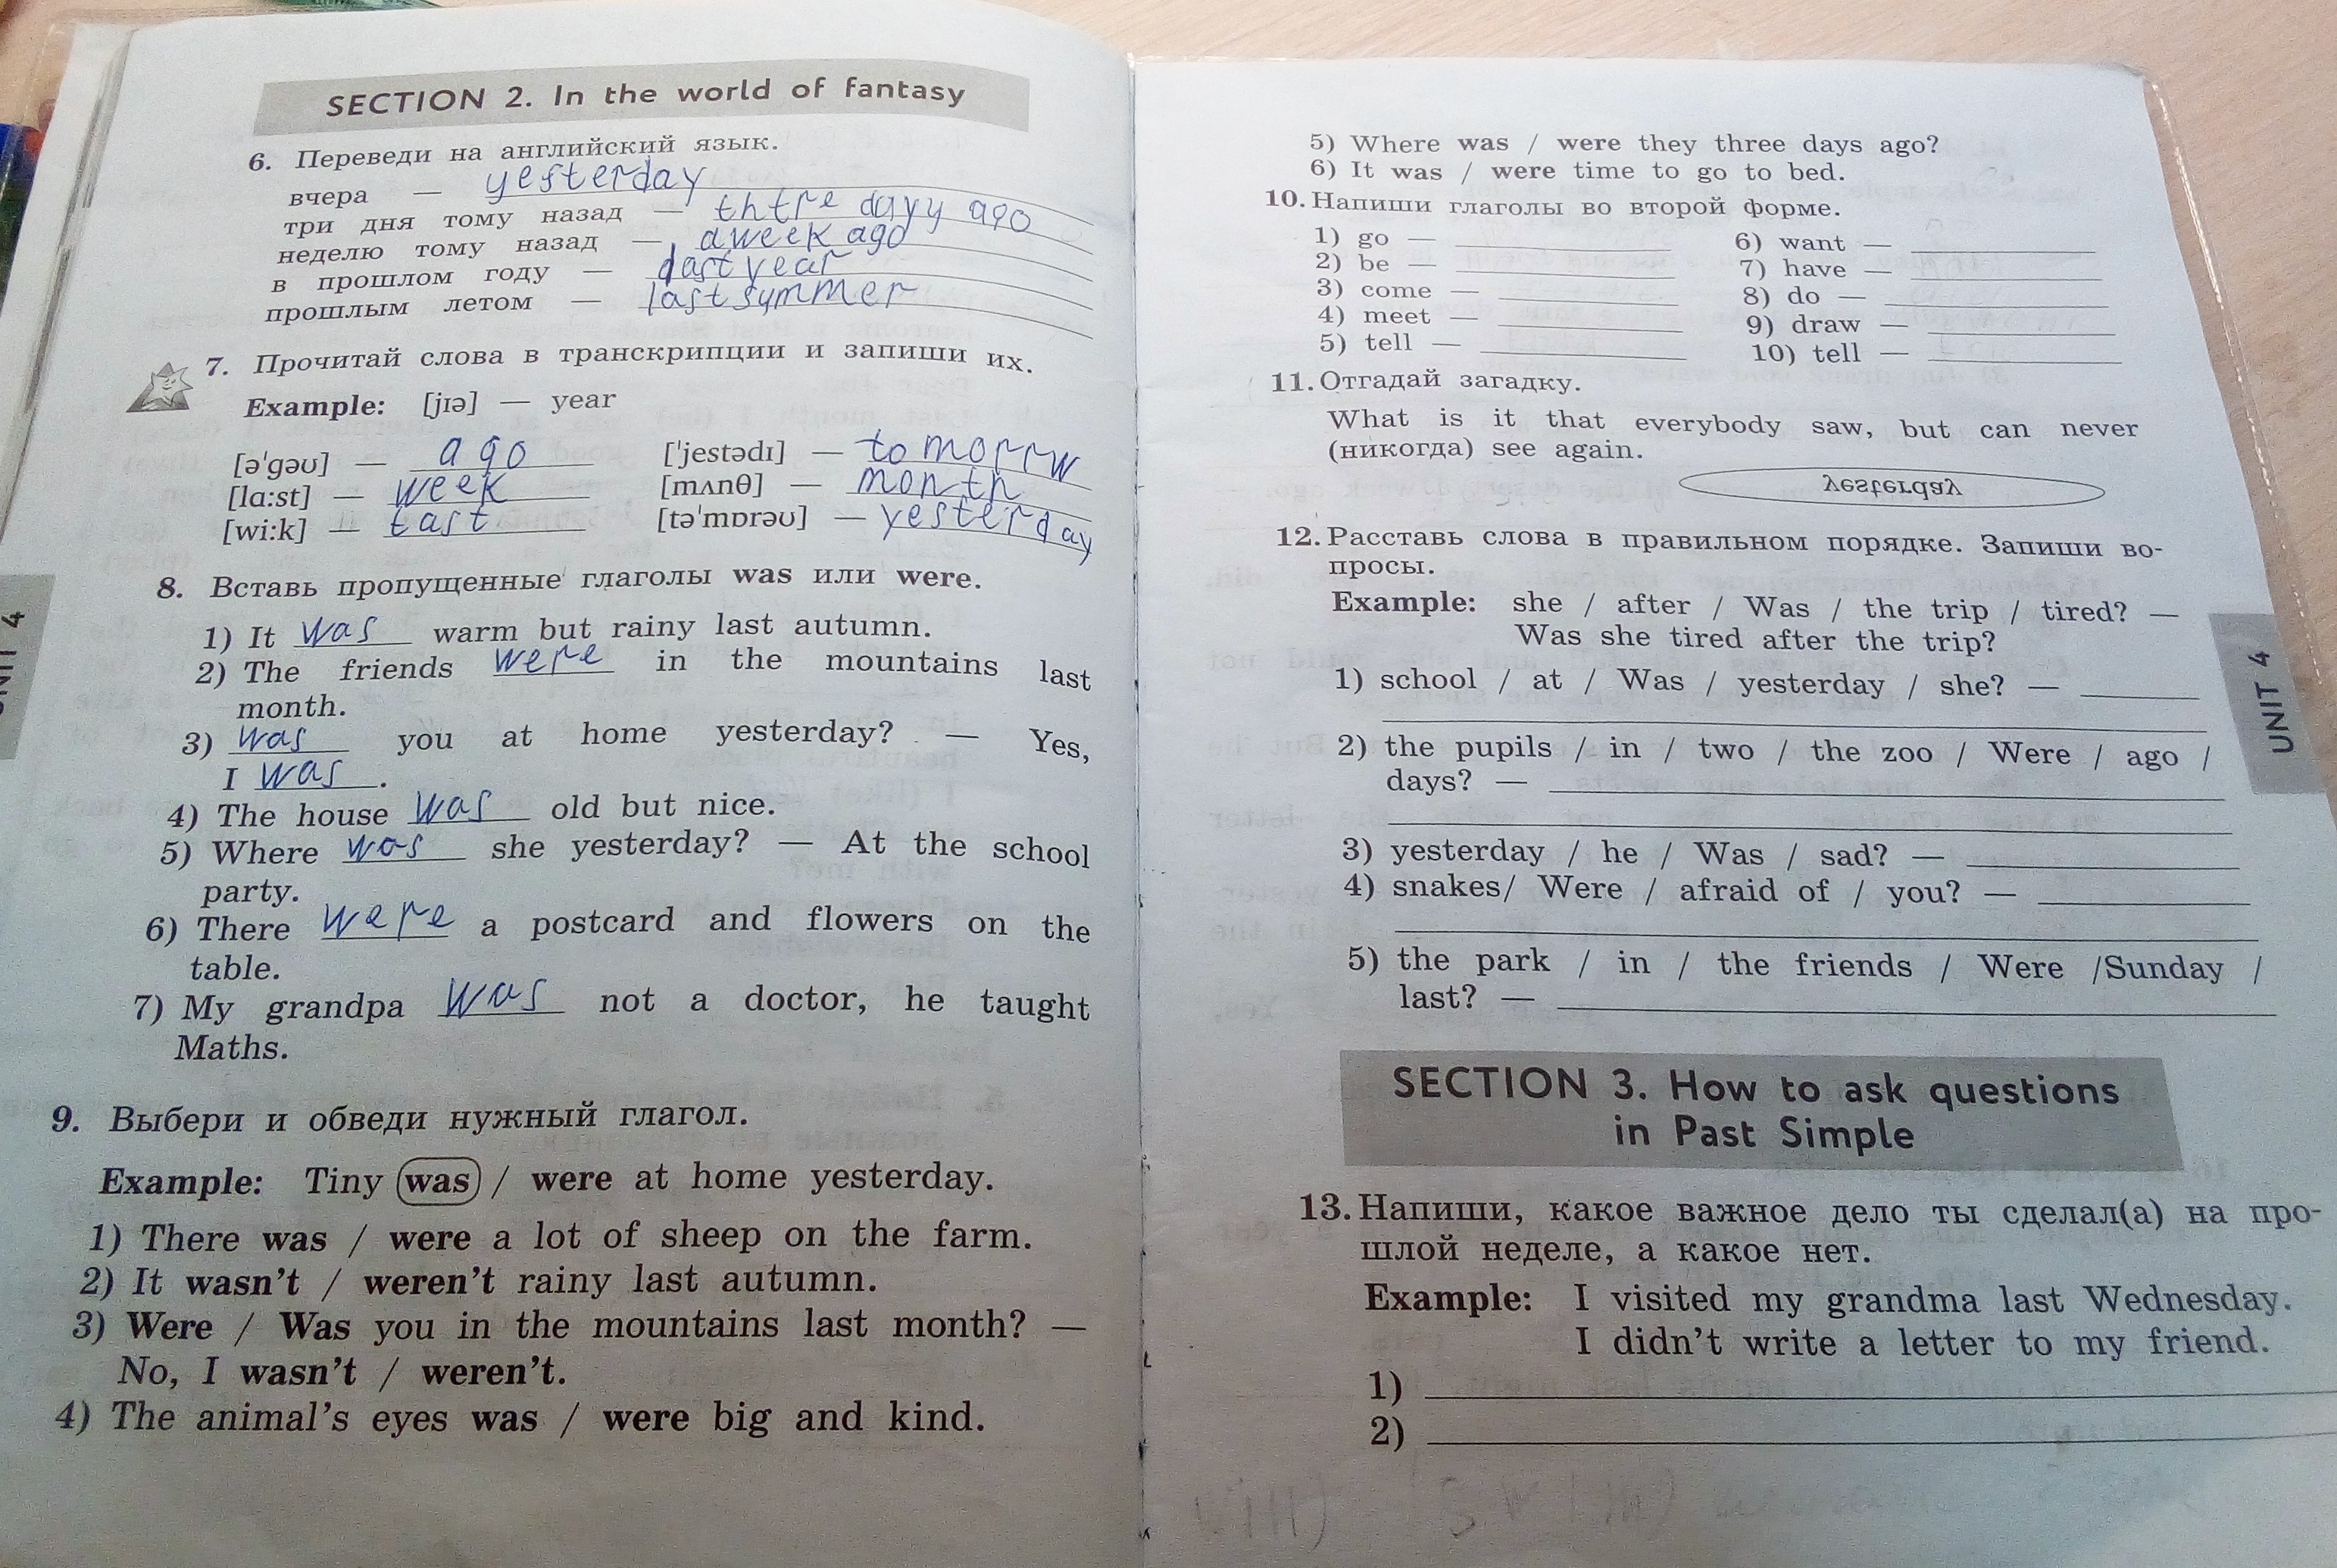 SECTION 2. In the world of fantasy
6. Переведи на английский язык.
вчера — yesterday
три дня тому назад — thtre dayy ago
неделю тому назад — a week ago
в прошлом году — last year
прошлым летом — last symmer
7. Прочитай слова в транскрипции и запиши их.
Example: [jɪə] — year
[əˈgəʊ] — ago [ˈjestədɪ] — tomorrw
[lɑːst] — week [mʌnθ] — month
[wiːk] — tast [təˈmɒrəʊ] — yesterday
8. Вставь пропущенные глаголы was или were.
1) It was warm but rainy last autumn.
2) The friends were in the mountains last
month.
3) was you at home yesterday? — Yes,
I was.
4) The house was old but nice.
5) Where was she yesterday? — At the school
party.
6) There were a postcard and flowers on the
table.
7) My grandpa was not a doctor, he taught
Maths.
9. Выбери и обведи нужный глагол.
Example: Tiny was / were at home yesterday.
1) There was / were a lot of sheep on the farm.
2) It wasn't / weren't rainy last autumn.
3) Were / Was you in the mountains last month? —
No, I wasn't / weren't.
4) The animal's eyes was / were big and kind.
UNIT 4
5) Where was / were they three days ago?
6) It was / were time to go to bed.
10. Напиши глаголы во второй форме.
1) go — 6) want —
2) be — 7) have —
3) come — 8) do —
4) meet — 9) draw —
5) tell — 10) tell —
11. Отгадай загадку.
What is it that everybody saw, but can never
(никогда) see again.
yesterday
12. Расставь слова в правильном порядке. Запиши во-
просы.
Example: she / after / Was / the trip / tired? —
Was she tired after the trip?
1) school / at / Was / yesterday / she? —
2) the pupils / in / two / the zoo / Were / ago /
days? —
3) yesterday / he / Was / sad? —
4) snakes/ Were / afraid of / you? —
5) the park / in / the friends / Were /Sunday /
last? —
UNIT 4
SECTION 3. How to ask questions
in Past Simple
13. Напиши, какое важное дело ты сделал(а) на про-
шлой неделе, а какое нет.
Example: I visited my grandma last Wednesday.
I didn't write a letter to my friend.
1)
2)